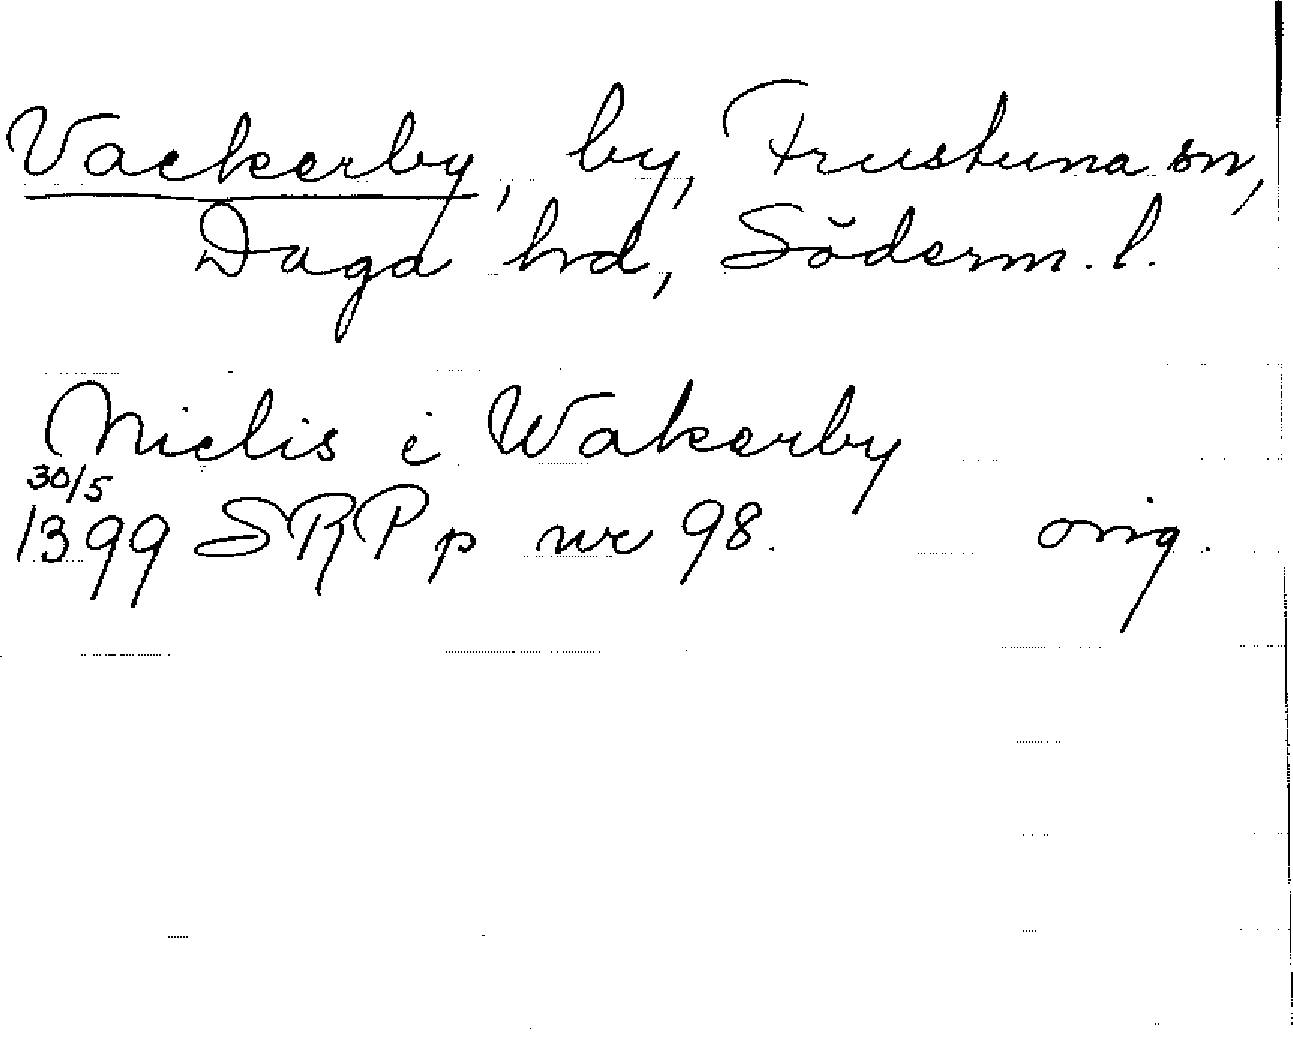 Vackerby, by, Frustuna sn,
Daga hd, Söderm. l.
Niclis i Wakerby
30/5
1399 SRP p nr 98. orig.